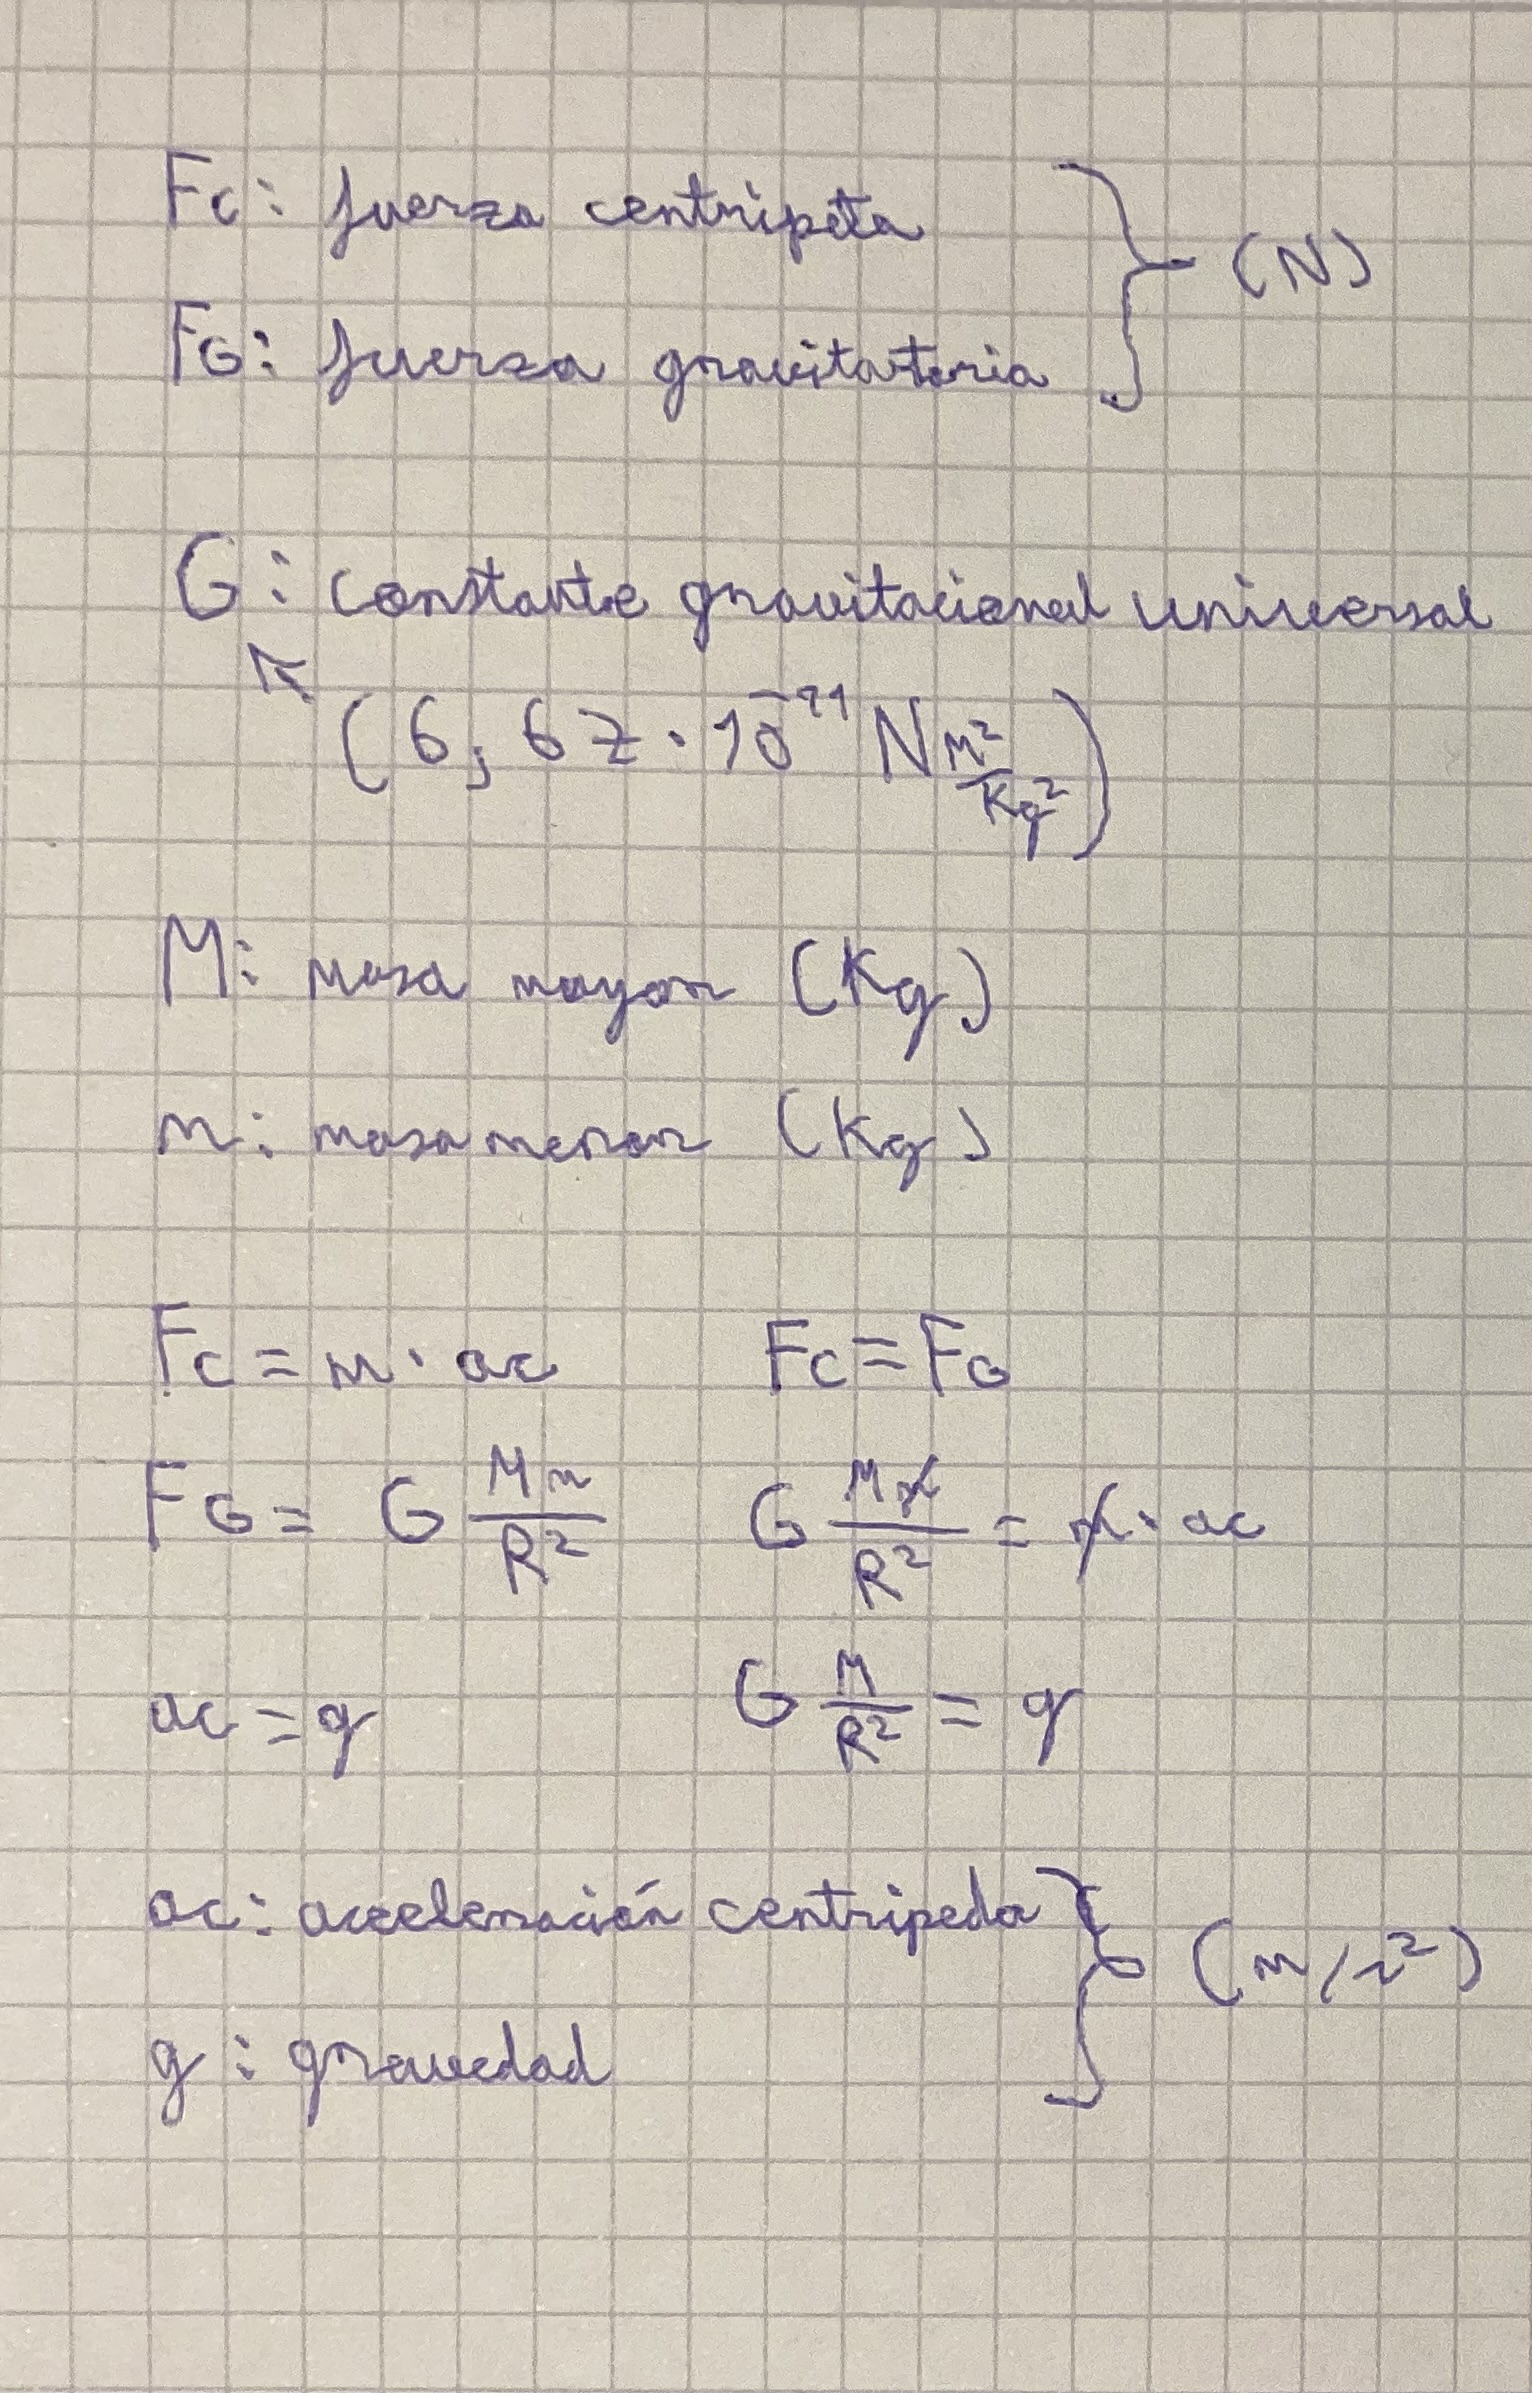 Fc: fuerza centripeta } (N)
FG: fuerza gravitatoria
G: constante gravitacional universal
(6,67 · 10^-11 N m²/Kg²)
M: masa mayor (Kg)
m: masa menor (Kg)
Fc = m · ac Fc = FG
FG = G Mm/R² G Mm/R² = m · ac
ac = g G M/R² = g
ac: aceleración centripeda } (m/s²)
g: gravedad